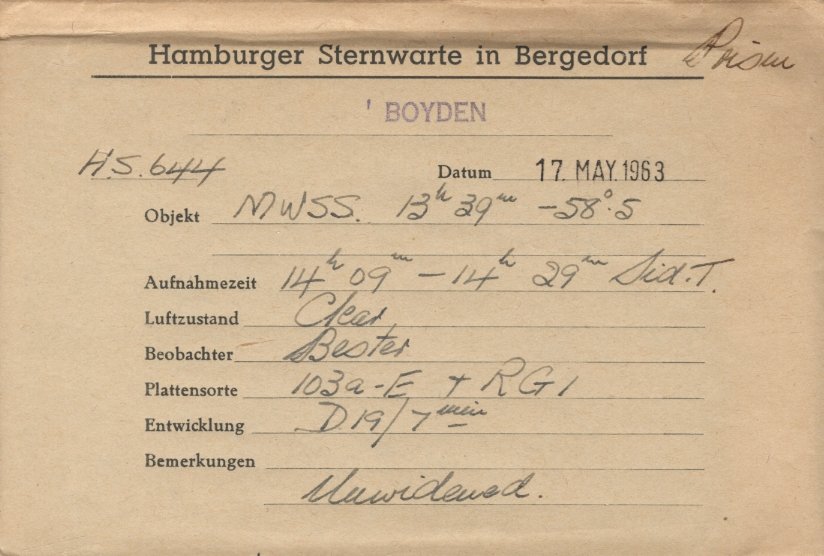 Hamburger Sternwarte in Bergedorf Prism
' BOYDEN
H.S. 644 Datum 17. MAY. 1963
Objekt MWSS. 13ʰ 39ᵐ -58°.5
Aufnahmezeit 14ʰ 09ᵐ - 14ʰ 29ᵐ Sid. T.
Luftzustand Clear
Beobachter Bester
Plattensorte 103a-E + RG1
Entwicklung D.19/7 min
Bemerkungen
Unwidened.